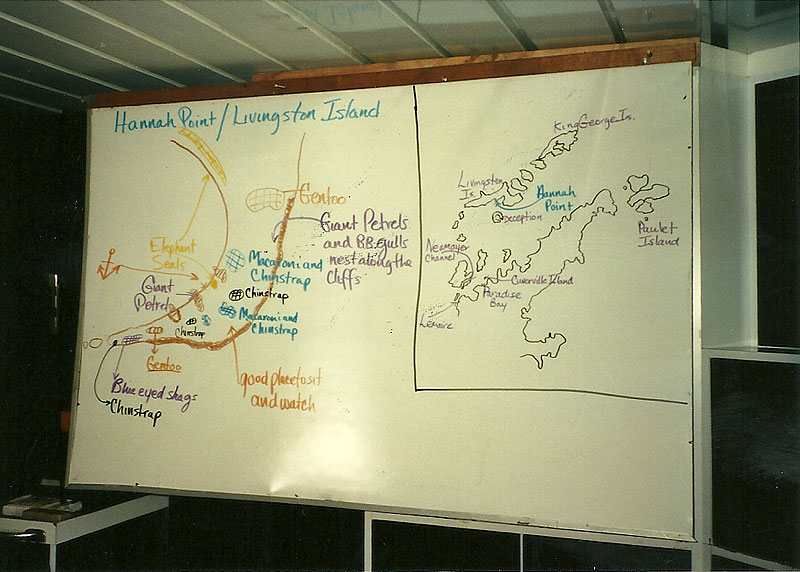 Hannah Point / Livingston Island
Gentoo
Giant Petrels
and B.B. gulls
nest along the
cliffs
Elephant
Seals
Macaroni and
Chinstrap
Giant
Petrel
Chinstrap
Macaroni and
Chinstrap
Chinstrap
Gentoo
good place to sit
and watch
Blue eyed shags
Chinstrap
King George Is.
Livingston
Is.
Hannah
Point
Deception
Paulet
Island
Neumayer
Channel
Cuverville Island
Paradise
Bay
Lemaire